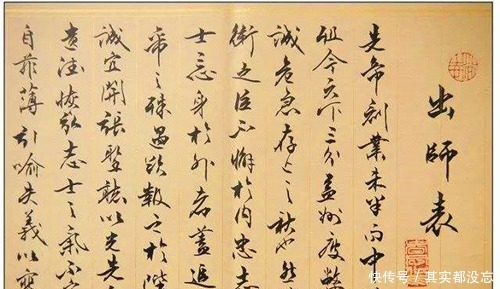 出師表
先帝創業未半而中
殂今天下三分益州疲弊
誠危急存亡之秋也然
衛之臣不懈於內忠志
士忘身於外者蓋追
帝之殊遇欲報之於陛
誠宜開張聖聽以光先
遺德恢弘志士之氣不宜
自菲薄引喻失義以塞
快传号 / 其实都没忘